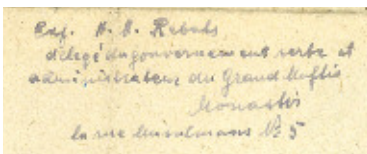 Exp. H. H. Rebats
délegé du gouvernement serbe et
administrateur du Grand Muftis
Monastir
la rue Musulmans № 5